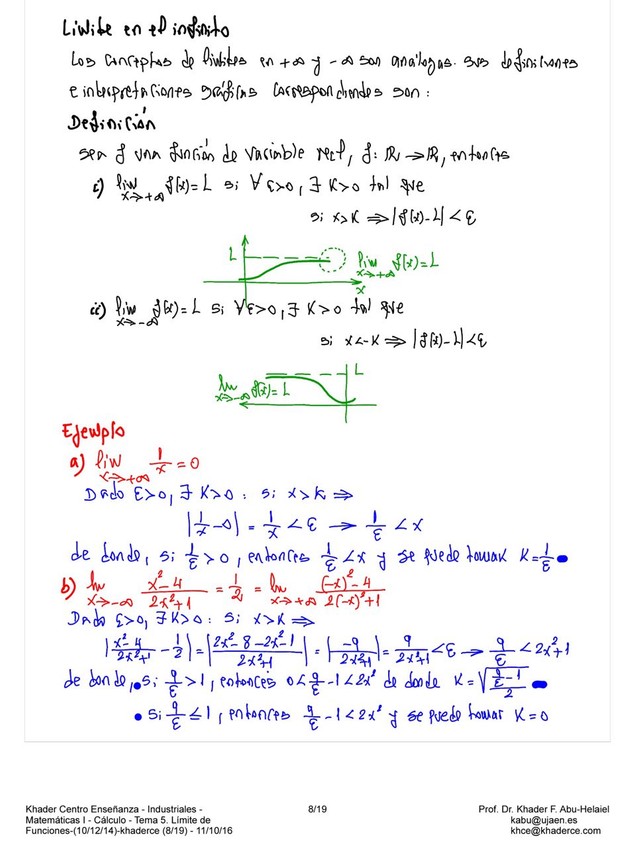 Límite en el infinito
Los conceptos de límites en +∞ y -∞ son análogas. sus definiciones
e interpretaciones gráficas correspondientes son:
Definición
sea f una función de variable real, f: ℝ → ℝ, entonces
i) lim x→+∞ f(x)=L si ∀ε>0, ∃ K>0 tal que
si x>K ⟹ |f(x)-L| < ε
L
lim x→+∞ f(x)=L
x
ii) lim x→-∞ f(x)=L si ∀ε>0, ∃ K>0 tal que
si x<-K ⟹ |f(x)-L| < ε
L
lim x→-∞ f(x)=L
Ejemplo
a) lim x→+∞ 1/x = 0
Dado ε>0, ∃ K>0 : si x>K ⟹
|1/x - 0| = 1/x < ε → 1/ε < x
de donde, si 1/ε > 0, entonces 1/ε < x y se puede tomar K = 1/ε
b) lim x→-∞ (x²-4)/(2x²+1) = 1/2 = lim x→+∞ ((-x)²-4)/(2(-x)²+1)
Dado ε>0, ∃ K>0 : si x>K ⟹
|(x²-4)/(2x²+1) - 1/2| = |(2x²-8-2x²-1)/(2x²+1)| = |-9/(2x²+1)| = 9/(2x²+1) < ε → 9/ε < 2x²+1
de donde, • si 9/ε > 1, entonces 0 < 9/ε - 1 < 2x² de donde K = √((9/ε - 1)/2)
• si 9/ε ≤ 1, entonces 9/ε - 1 < 2x² y se puede tomar K=0
Khader Centro Enseñanza - Industriales -
Matemáticas I - Cálculo - Tema 5. Límite de
Funciones-(10/12/14)-khaderce (8/19) - 11/10/16
8/19
Prof. Dr. Khader F. Abu-Helaiel
kabu@ujaen.es
khce@khaderce.com